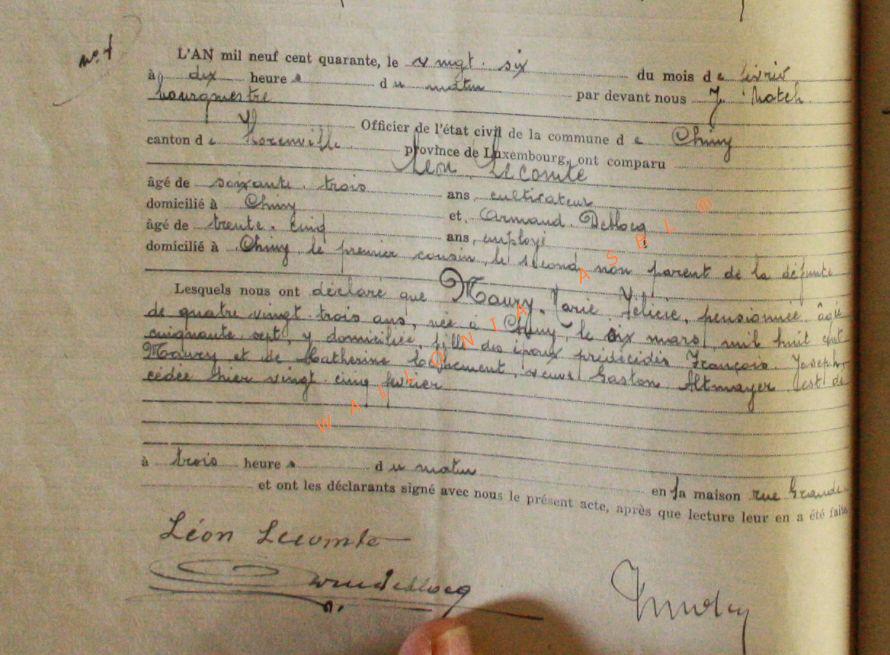 n° 4
L'AN mil neuf cent quarante, le vingt. six du mois de février
à dix heures du matin par devant nous J.
bourgmestre
Officier de l'état civil de la commune de Chiny
canton de Florenville province de Luxembourg, ont comparu
Léon Lecomte
âgé de soixante trois ans, cultivateur
domicilié à Chiny et, Armand Deblocq
âgé de trente. cinq ans, employé
domicilié à Chiny le premier cousin, le second, non parent de la défunte
Lesquels nous ont déclaré que Maury, Marie, Félicie, pensionnée, âgée
de quatre vingt trois ans, née à Chiny, le six mars, mil huit cent
cinquante sept, y domiciliée, fille des époux prédécédés François Joseph
Maury et de Catherine veuve Gaston Altmayer est dé
cédée hier vingt cinq février
à trois heures du matin en sa maison rue Grande
et ont les déclarants signé avec nous le présent acte, après que lecture leur en a été faite
Léon Lecomte
WALLONIA ASBL ©